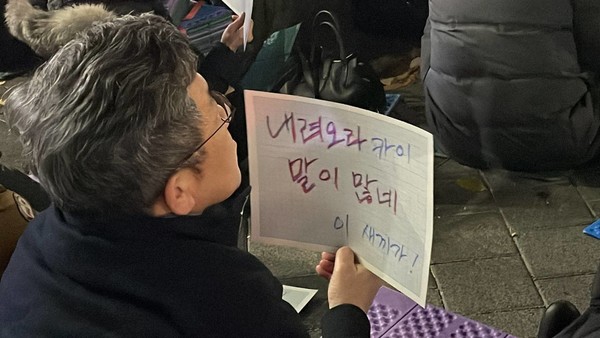 내려오라 카이
말이 많네
이 새끼가!